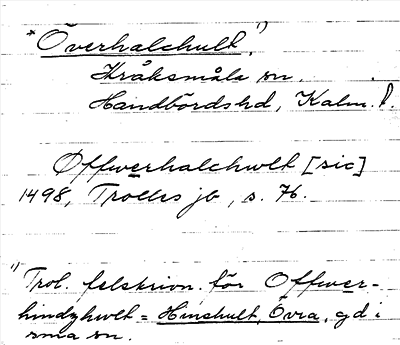 *Överhalchult, 1)
Kråksmåla sn.
Handbördshd, Kalm. l.
Øffwerhalchwlt [sic]
1498, Trolles jb, s. 76.
1) Trol. felskrivn. för Offwer-
hindzhwlt = Hinshult, Övra, gd i
sma sn.